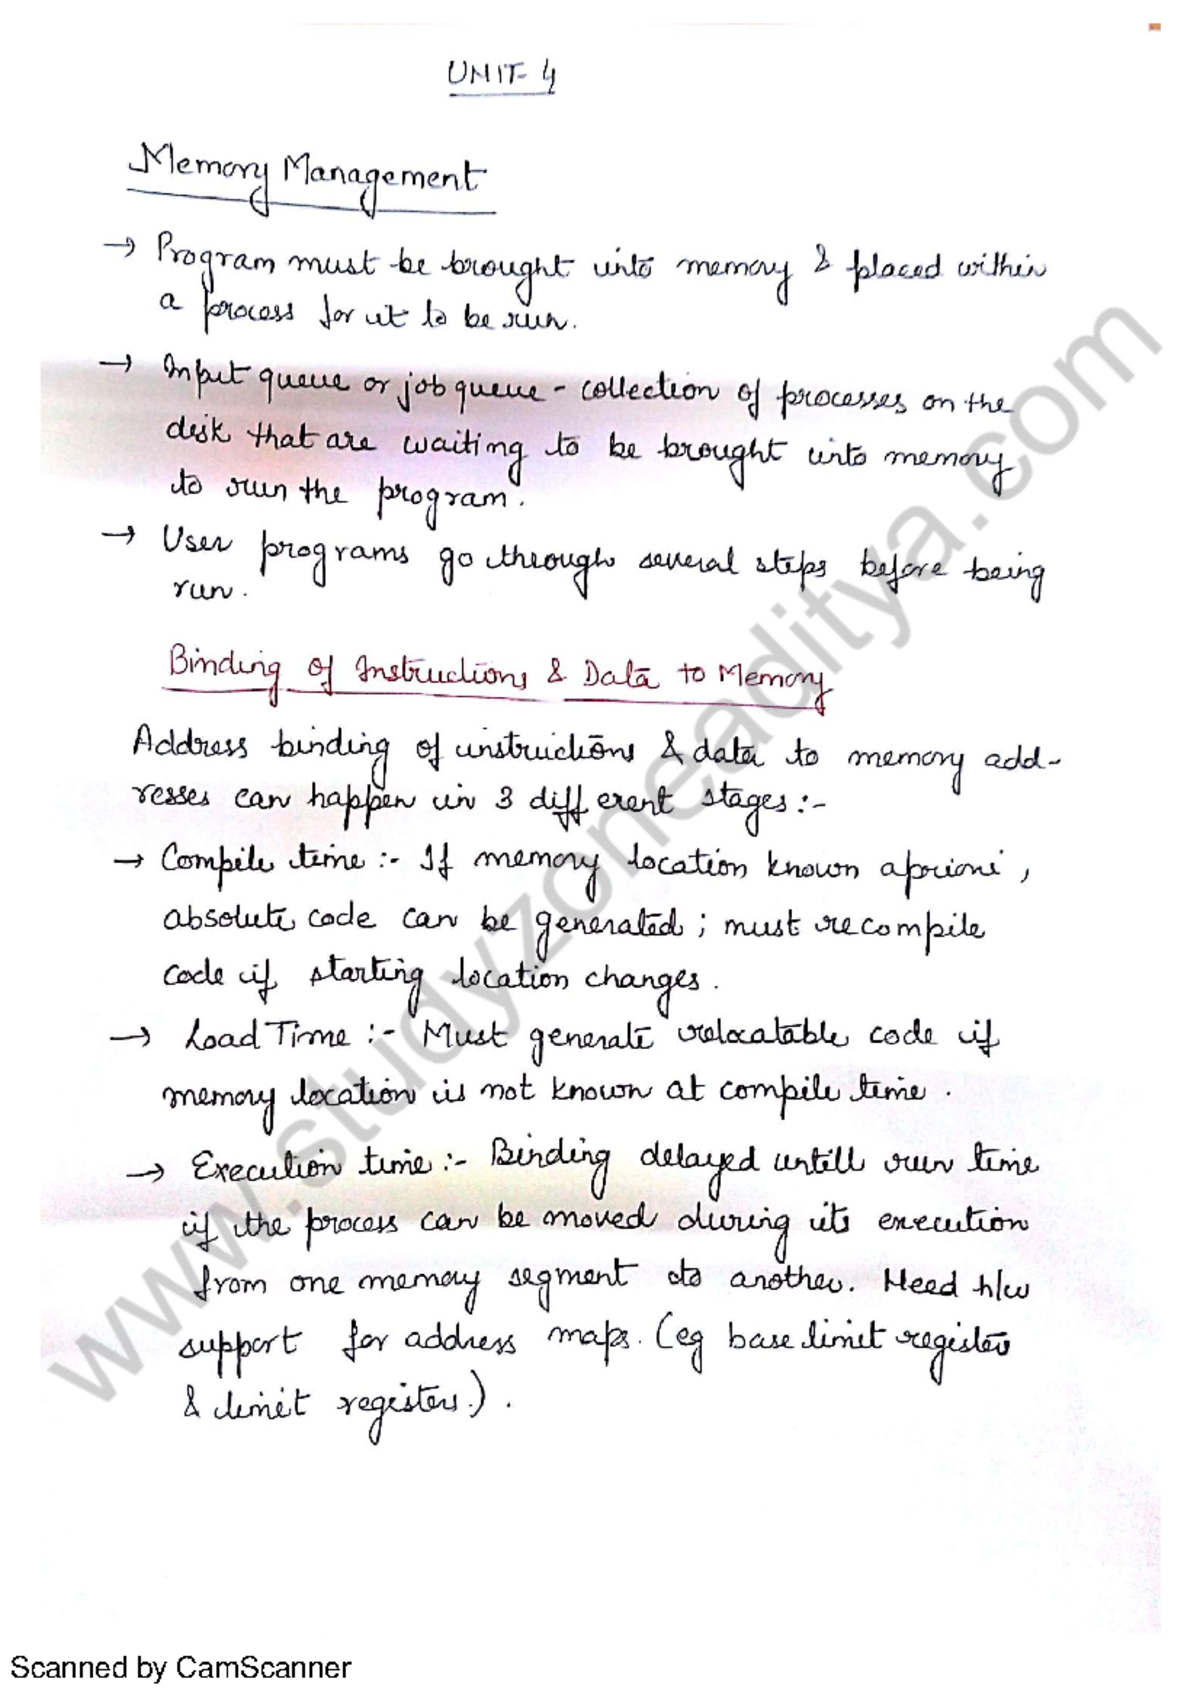 UNIT-4
Memory Management
→ Program must be brought into memory & placed within
a process for it to be run.
→ Input queue or job queue - collection of processes on the
disk that are waiting to be brought into memory
to run the program.
→ User programs go through several steps before being
run.
Binding of Instructions & Data to Memory
Address binding of instructions & data to memory add-
resses can happen in 3 different stages :-
→ Compile time :- If memory location known apriori,
absolute code can be generated; must recompile
code if starting location changes.
→ Load Time :- Must generate relocatable code if
memory location is not known at compile time.
→ Execution time :- Binding delayed untill run time
if the process can be moved during its execution
from one memory segment to another. Need h/w
support for address maps. (eg base limit register
& limit registers.).
www.studyzoneaditya.com
Scanned by CamScanner